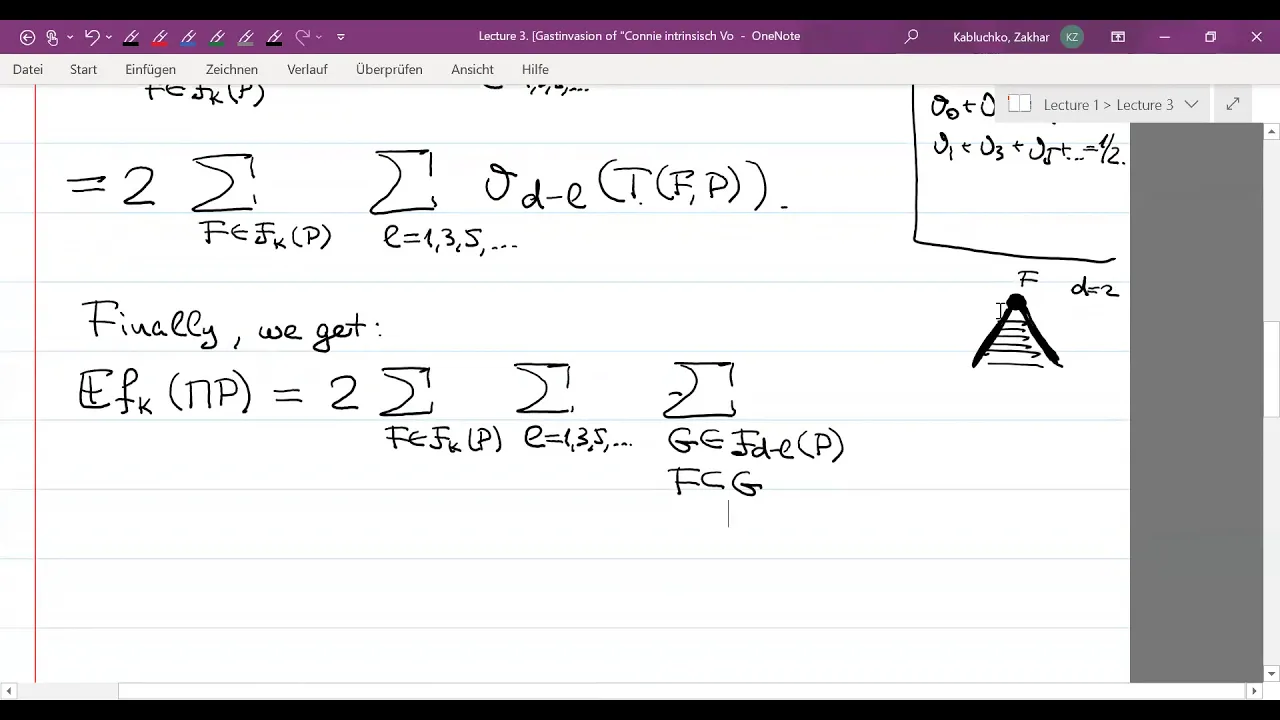 Lecture 3. [Gastinvasion of "Connie intrinsisch Vo - OneNote
Kabluchko, Zakhar KZ
Datei Start Einfügen Zeichnen Verlauf Überprüfen Ansicht Hilfe
Lecture 1 > Lecture 3
F∈𝓕ₖ(P)
ϑ₁ + ϑ₃ + ϑ₅ + ... = 1/2.
= 2 ∑ ∑ ϑ_{d-ℓ}(T(F,P)).
F∈𝓕ₖ(P) ℓ=1,3,5,...
F d=2
Finally, we get:
𝔼fₖ(ΠP) = 2 ∑ ∑ ∑
F∈𝓕ₖ(P) ℓ=1,3,5,... G∈𝓕_{d-ℓ}(P)
F⊂G